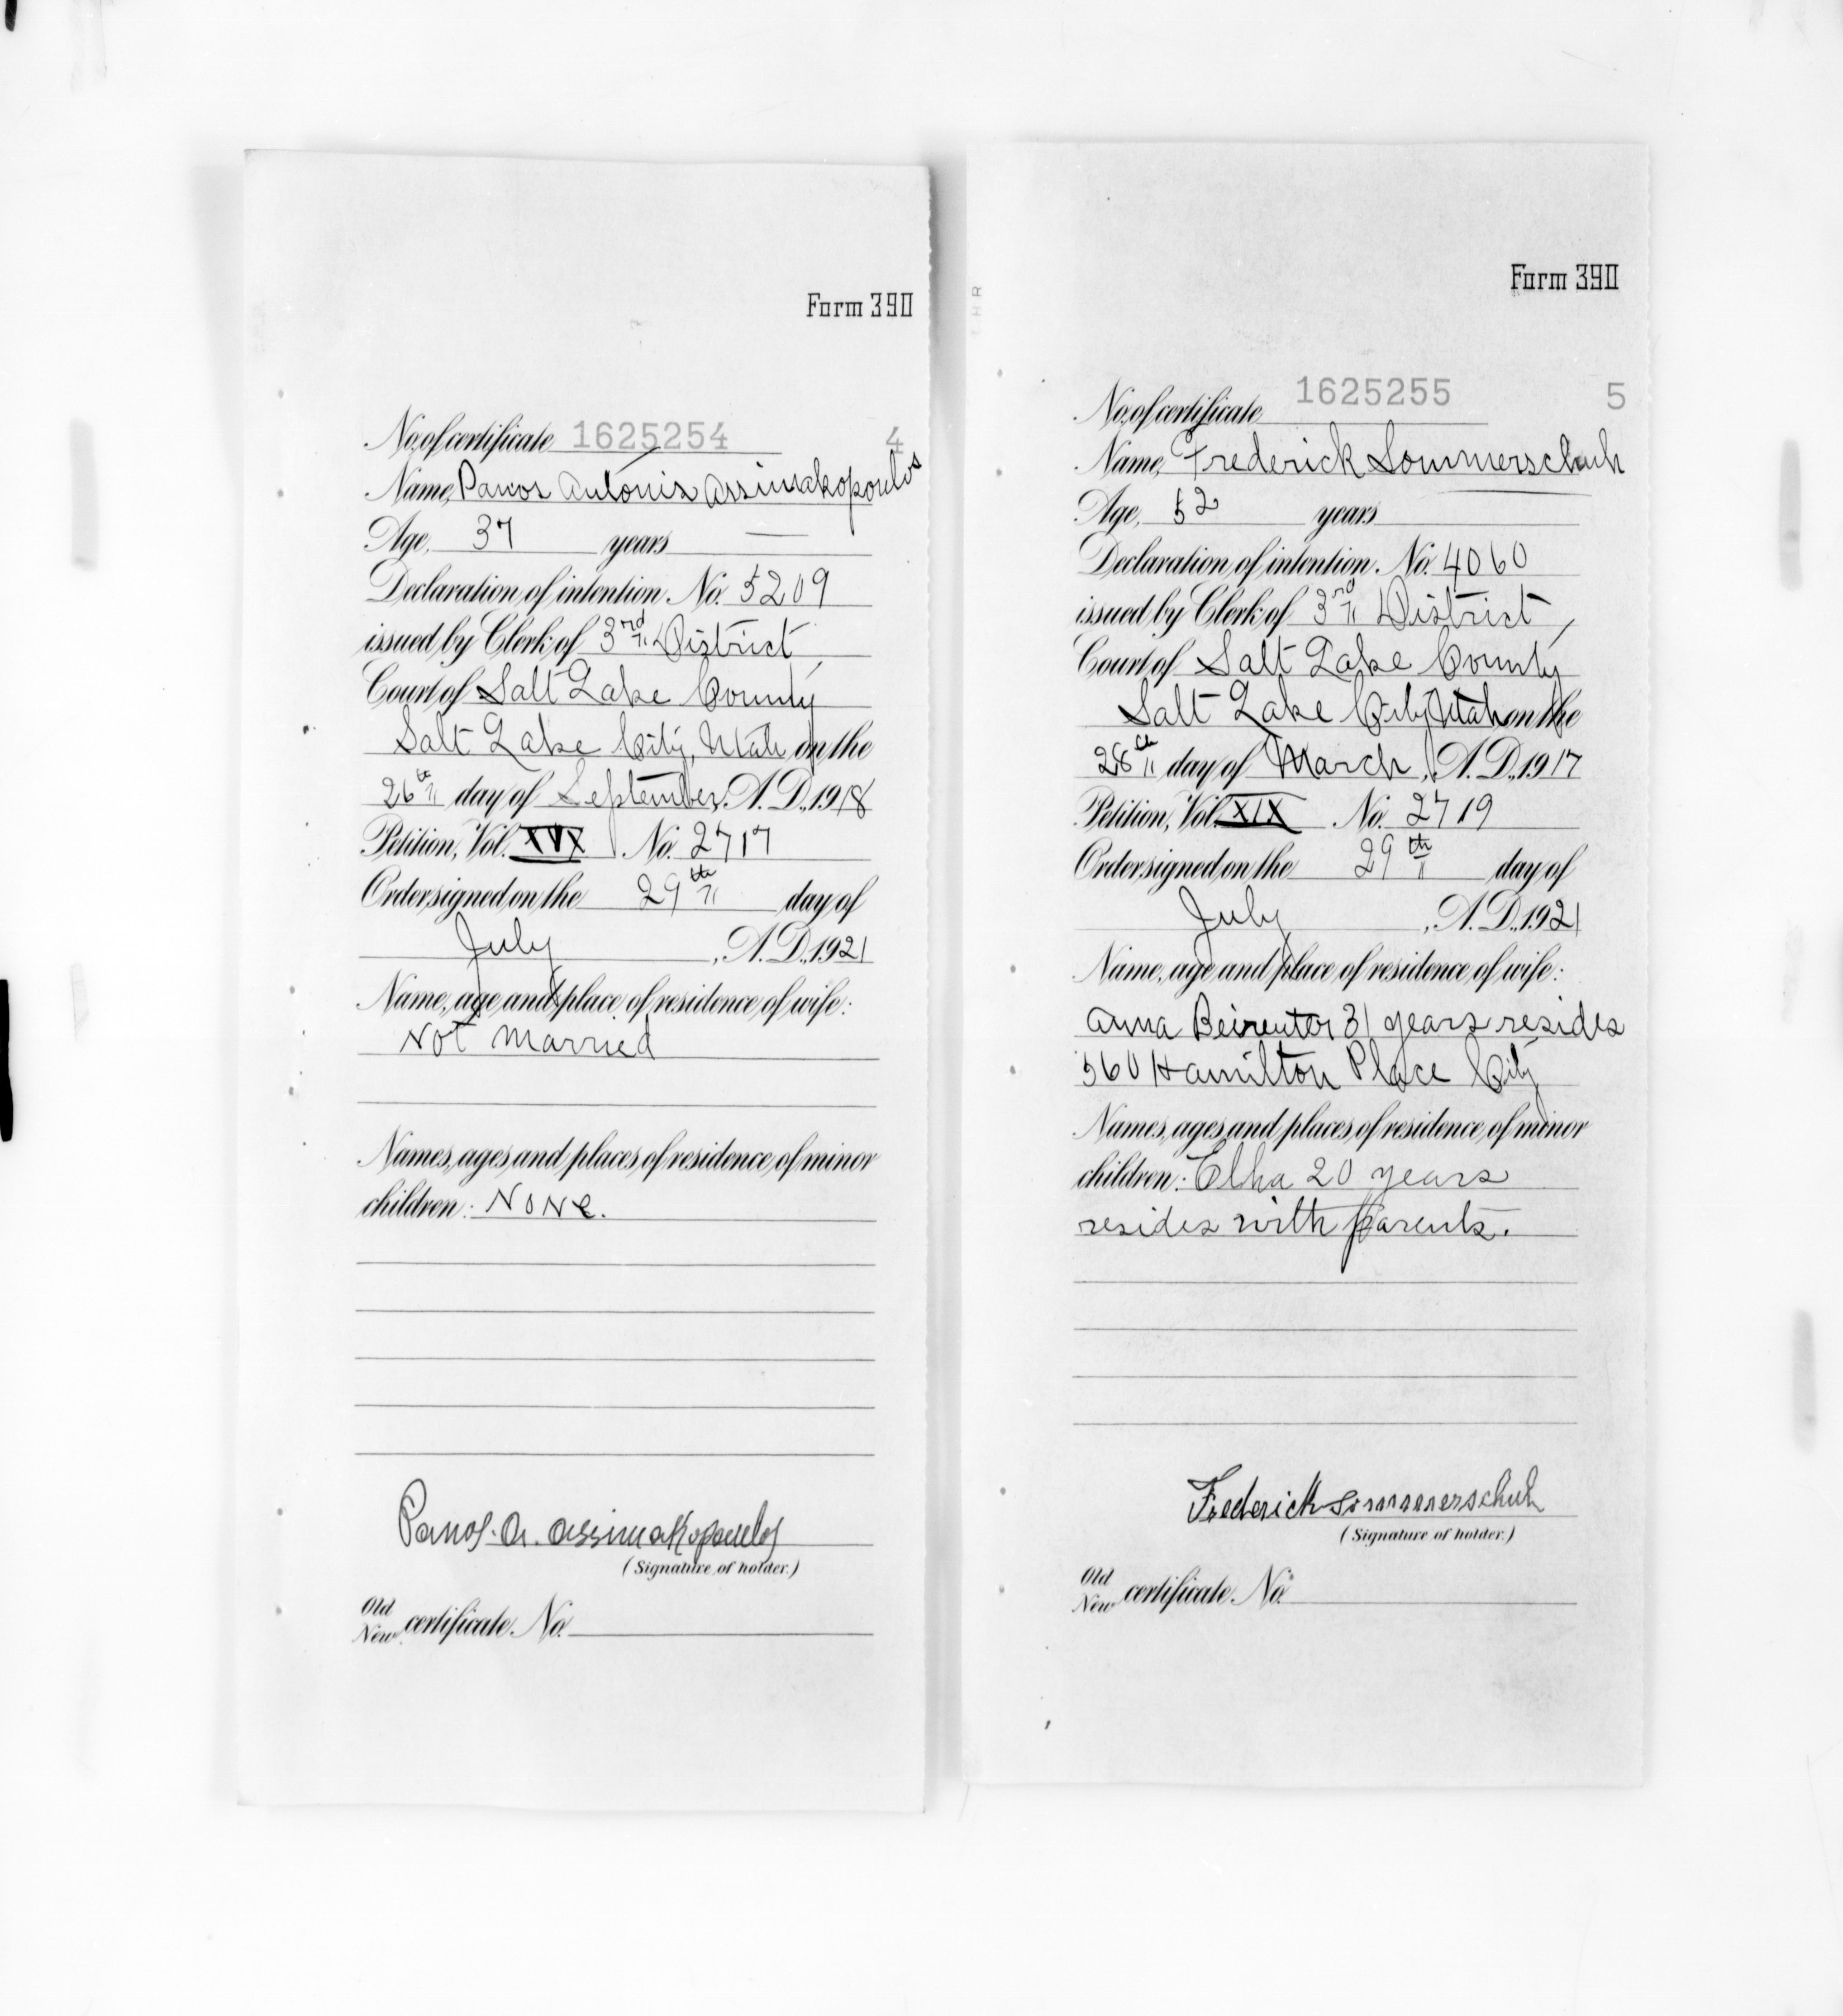 Form 390
No. of certificate 1625254 4
Name, Panos Antonis Assimakopoulos
Age, 37 years
Declaration of intention No. 5209
issued by Clerk of 3rd District
Court of Salt Lake County
Salt Lake City, Utah on the
26th day of September, A. D., 1918
Petition, Vol. XVX No. 2717
Order signed on the 29th day of
July, A. D., 1921
Name, age and place of residence of wife:
Not Married
Names, ages and places of residence of minor
children: None.
Panos. A. Assimakopoulos
(Signature of holder.)
Old
New certificate No.
Form 390
No. of certificate 1625255 5
Name, Frederick Sommerschuh
Age, 52 years
Declaration of intention No. 4060
issued by Clerk of 3rd District,
Court of Salt Lake County
Salt Lake City Utah on the
28th day of March, A. D., 1917
Petition, Vol. XIX No. 2719
Order signed on the 29th day of
July, A. D., 1921
Name, age and place of residence of wife:
Anna 31 years resides
560 Hamilton Place City
Names, ages and places of residence of minor
children: 20 years
resides with parents.
Frederick Sommerschuh
(Signature of holder.)
Old
New certificate No.